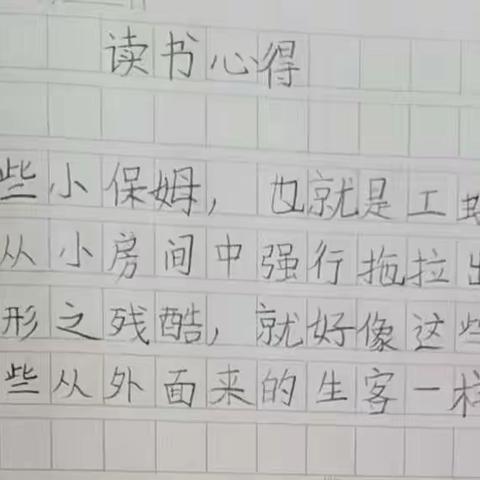 读书心得
些小保姆，也就是工
从小房间中强行拖拉出
形之残酷，就好像这些
些从外面来的生客一样